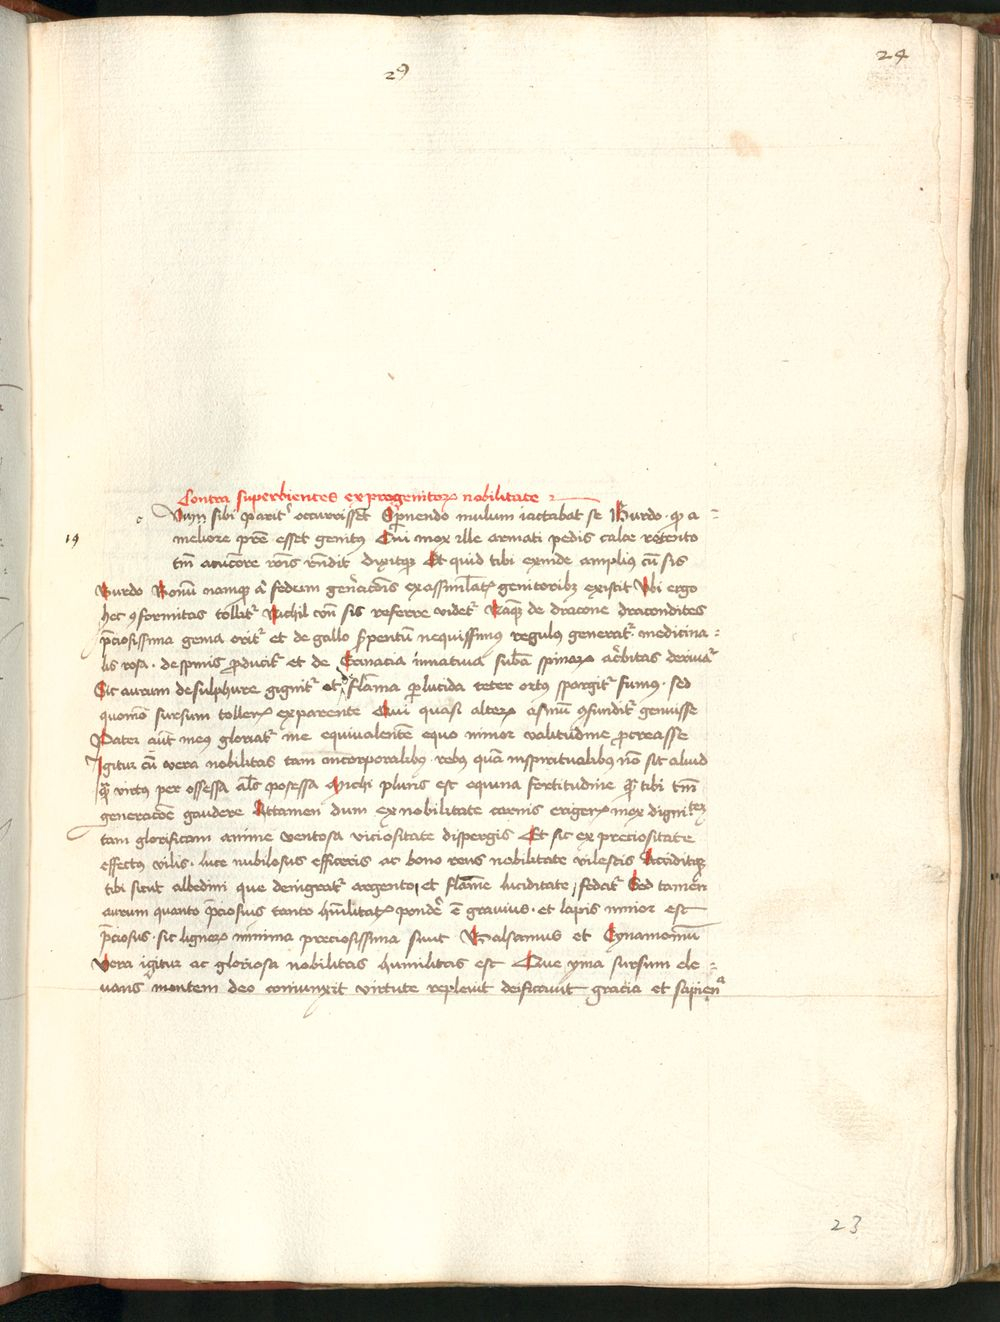 29
24
Contra superbientes ex progenitoꝝ nobilitate
c
Vum sibi pariter occurrissēt Spernendo mulum iactabat se Burdo · qꝫ a =
19
meliore pr̄e esset genitꝰ Cui mox ille armati pedis calce retento
tm̄ acucōre rōis rn̄dit dixitqꝫ Et quid tibi exinde ampliꝰ cū sis
Burdo Bonū namqꝫ ex assimilat̉ genitoribꝫ existit Ubi ergo
hec ꝯformitas tollit̉ Nichil cōn sis referre videt̉ Naqꝫ de dracone dracondites
p̄ciosissima gema orit̉ et de gallo ẜpentiū nequissimꝰ regulꝰ generat̉ · medicina =
lis rosa · de spinis ꝓducit̉ et de Ermacia innativa subā spinaꝝ ac̉bitas derivat̉
Sic aurum de sulphure gignit̉ et de flāma ꝑlucida teter ortꝰ spargit̉ fumꝰ · sed
quomō sursum tolleris ex parente Qui quasi alteꝝ asinū ꝯfundit̉ genuisse
Pater aūt meꝰ gloriat̉ me equivalentē equo minor valitudine ꝓcreasse
Igitur cū vera nobilitas tam in corporalibꝰ rebꝰ quā in spiritualibꝰ nō sit aliud
qꝫ virtꝰ per ossessa al̄s possessa Michi pluris est equina fortitudine qꝫ tibi tm̄
generacōe gaudere Attamen dum ex nobilitate carnis erigeris mox dignitatē
tam glorificam anime ventosa viciositate dispergis Et sic ex preciositate
effectꝰ vilis · luce nubilosus efficeris ac bono reus nobilitate vilescis Acciditqꝫ
tibi sicut albedini que denigrat̉ argento et flāme luciditate fedat̉ Sed tamen
aurum quanto p̄ciosius tanto humilitatꝭ pondē ē gravius · et lapis minor est
p̄ciosus · sic lignoꝝ minima preciosissima sunt Balsamus et Cynamomū
Vera igitur ac gloriosa nobilitas humilitas est Que yma sursum ele =
vans mentem deo coniunxit virtute replevit deificavit gracia et sapien
23